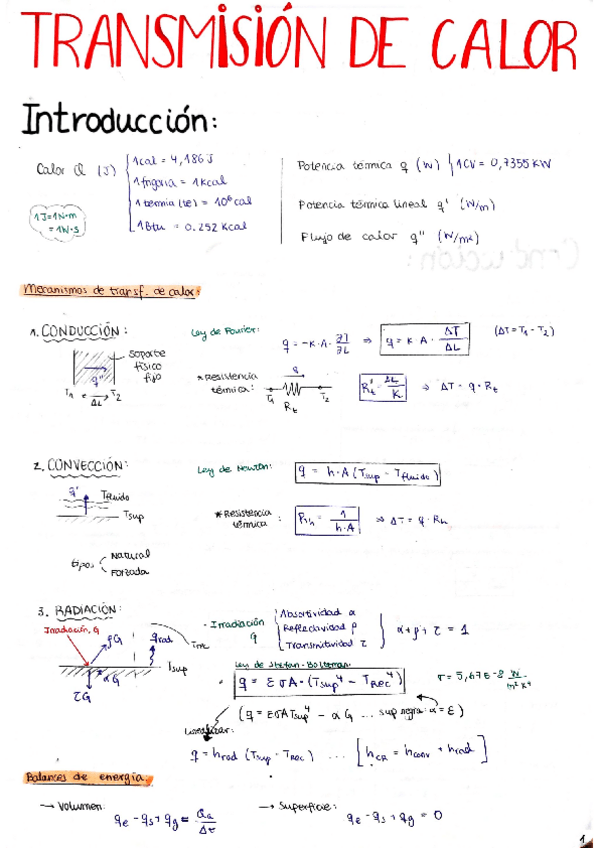 TRANSMISIÓN DE CALOR
Introducción:
Calor Q (J)
1 cal = 4,186 J
1 frigoria = 1 Kcal
1 termia (te) = 10⁶ cal
1 Btu = 0.252 Kcal
1J = 1N·m
= 1W·s
Potencia térmica q (W) 1CV = 0,7355 KW
Potencia térmica lineal q' (W/m)
Flujo de calor q'' (W/m²)
Mecanismos de transf. de calor:
1. CONDUCCIÓN:
soporte
físico
fijo
q''
T₁ ΔL T₂
Ley de Fourier:
q = -K·A· ∂T/∂L ⇒ q = K·A· ΔT/ΔL (ΔT = T₁ - T₂)
* Resistencia
térmica:
T₁ T₂
Rt
⇒ ΔT = q·Rt
2. CONVECCIÓN:
Tfluido
Tsup
tipos
Natural
Forzada
Ley de Newton:
q = h·A (Tsup - Tfluido)
* Resistencia
térmica :
Rh = 1/h·A ⇒ ΔT = q·Rh
3. RADIACIÓN:
Irradiación, G
ρG
qrad
αG
Tsup
τG
· Irradiación
Absortividad α
Reflectividad ρ
Transmitividad τ
α + ρ + τ = 1
Ley de Stefan-Boltzman
q = εσA·(Tsup⁴ - TRec⁴)
σ = 5,67E-8 W/m²K⁴
(q = εσATsup⁴ - αG ... sup negra: α = ε)
Linealizar:
q = hrad (Tsup - TRec) ... [hCR = hconv + hrad]
Balances de energía:
→ Volumen:
→ Superficie:
qe - qs + qg = 0
1